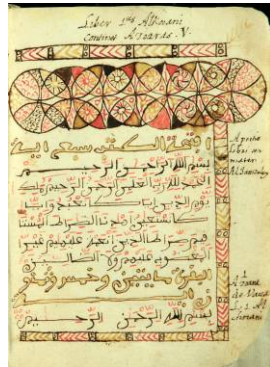 Liber 1us Alkorani
Continet Azoaras. V.
الكتب سبع اية
بسم الله الرحمن الرحيم
الحمد لله رب العلمين الرحمن الرحيم ملك
يوم الدين اياك نعبد واياك
نستعين اهدنا الصراط المست
قيم صراط الذين انعمت عليهم غير ا
لمغضوب عليهم ولا الضالين
البقرة مايتين وخمس
بسم الله الرحمن الرحيم
mater
de Vacca